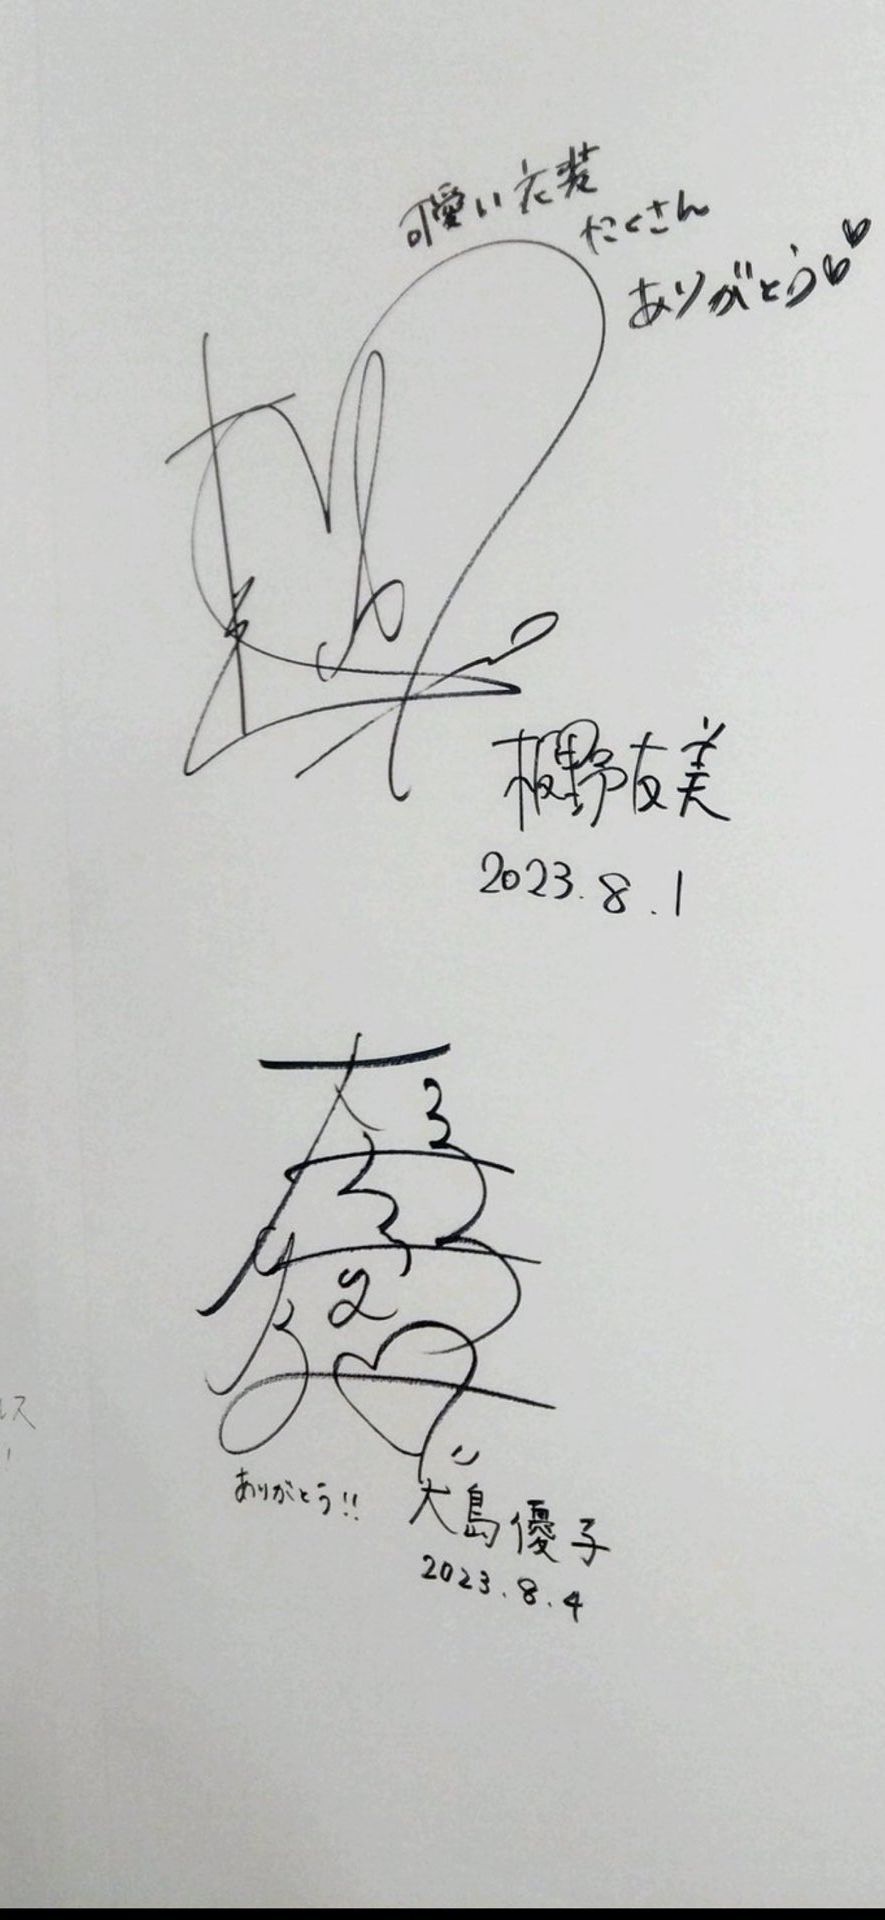 可愛い衣装
たくさん
ありがとう♡♡
板野友美
2023.8.1
ありがとう!!
大島優子
2023.8.4